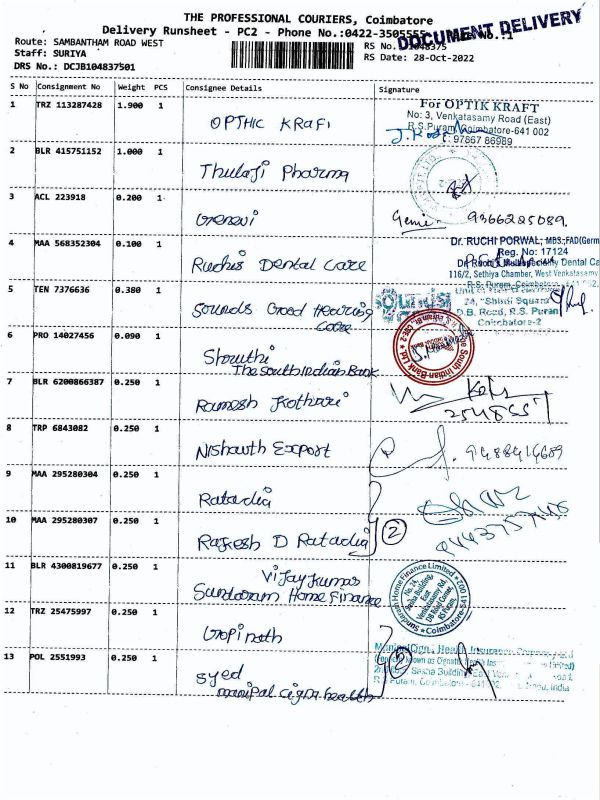 THE PROFESSIONAL COURIERS, Coimbatore
Delivery Runsheet - PC2 - Phone No.:0422-3505555
DOCUMENT DELIVERY
Route: SAMBANTHAM ROAD WEST
Staff: SURIYA
DRS No.: DCJB104837501
RS Date: 28-Oct-2022
S No Consignment No Weight PCS Consignee Details Signature
1 TRZ 113287428 1.900 1 OPTHIC KRAFT
For OPTIK KRAFT
No: 3, Venkatasamy Road (East)
R.S.Puram, Coimbatore-641 002
: 97867 86989
2 BLR 415751152 1.000 1 Thulaji Pharma
3 ACL 223918 0.200 1 9366225089.
4 MAA 568352304 0.100 1 Ruchis Dental Care
Dr. RUCHI PORWAL, MBS.,FAD(Germ
Reg. No: 17124
116/2, Sethiya Chamber, West Venkatasamy
R.S. Puram, Coimbatore
5 TEN 7376636 0.380 1 Sounds Good Hearing
Care
24, "Shindi Square"
D.B. Road, R.S. Puram
Coimbatore-2
6 PRO 14027456 0.090 1 Shruthi
The South Indian Bank
The South Indian Bank Ltd
7 BLR 6200866387 0.250 1 Ramesh Kothari
8 TRP 6843082 0.250 1 Nishanth Export
9488414689
9 MAA 295280304 0.250 1 Ratadia
10 MAA 295280307 0.250 1 Rajesh D Ratadia 2
11 BLR 4300819677 0.250 1 Vijay Kumar
Sundaram Home Finance
Sundaram Home Finance Limited
No. 24,
Sasha Building,
East
Venkatasamy Rd,
DB Road Corner,
RS Puram,
Coimbatore
12 TRZ 25475997 0.250 1 Gopinath
13 POL 2551993 0.250 1 syed
manipal cigna health
Sasha Building East
R S Puram, Coimbatore - 641002, India